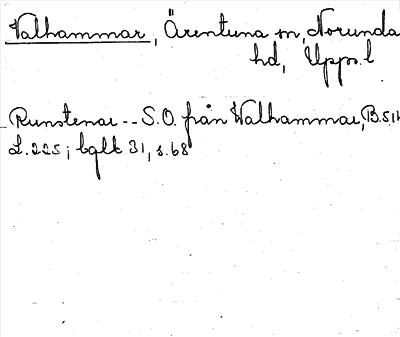 Valhammar, Ärentuna sn, Norunda
hd, Upps. l
Runstenar -- S.O. från Walhammar, B.514
L.225; bglk 31, s.68